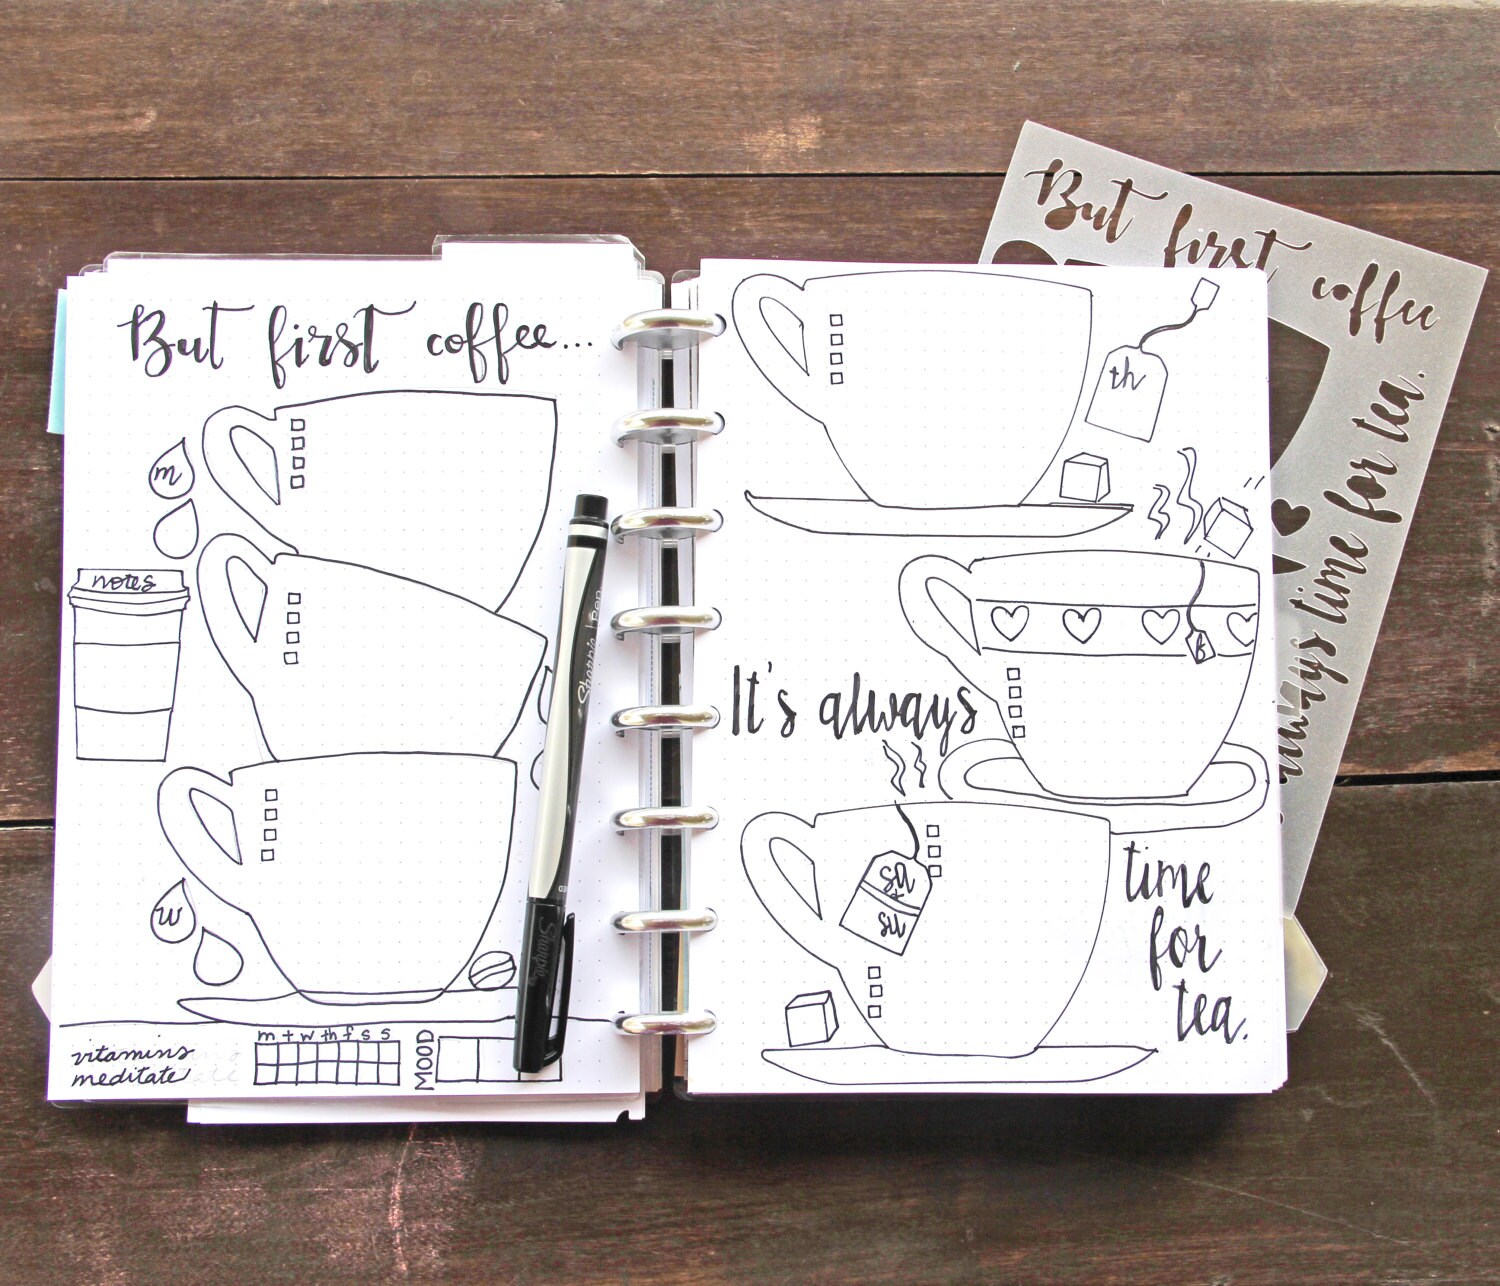 But first coffee...
m
notes
w
vitamins
meditate
m t w th f s s
MOOD
Sharpie Pen
Sharpie
th
t
It's always
sa
+
su
time
for
tea.
But first coffee
always time for tea.